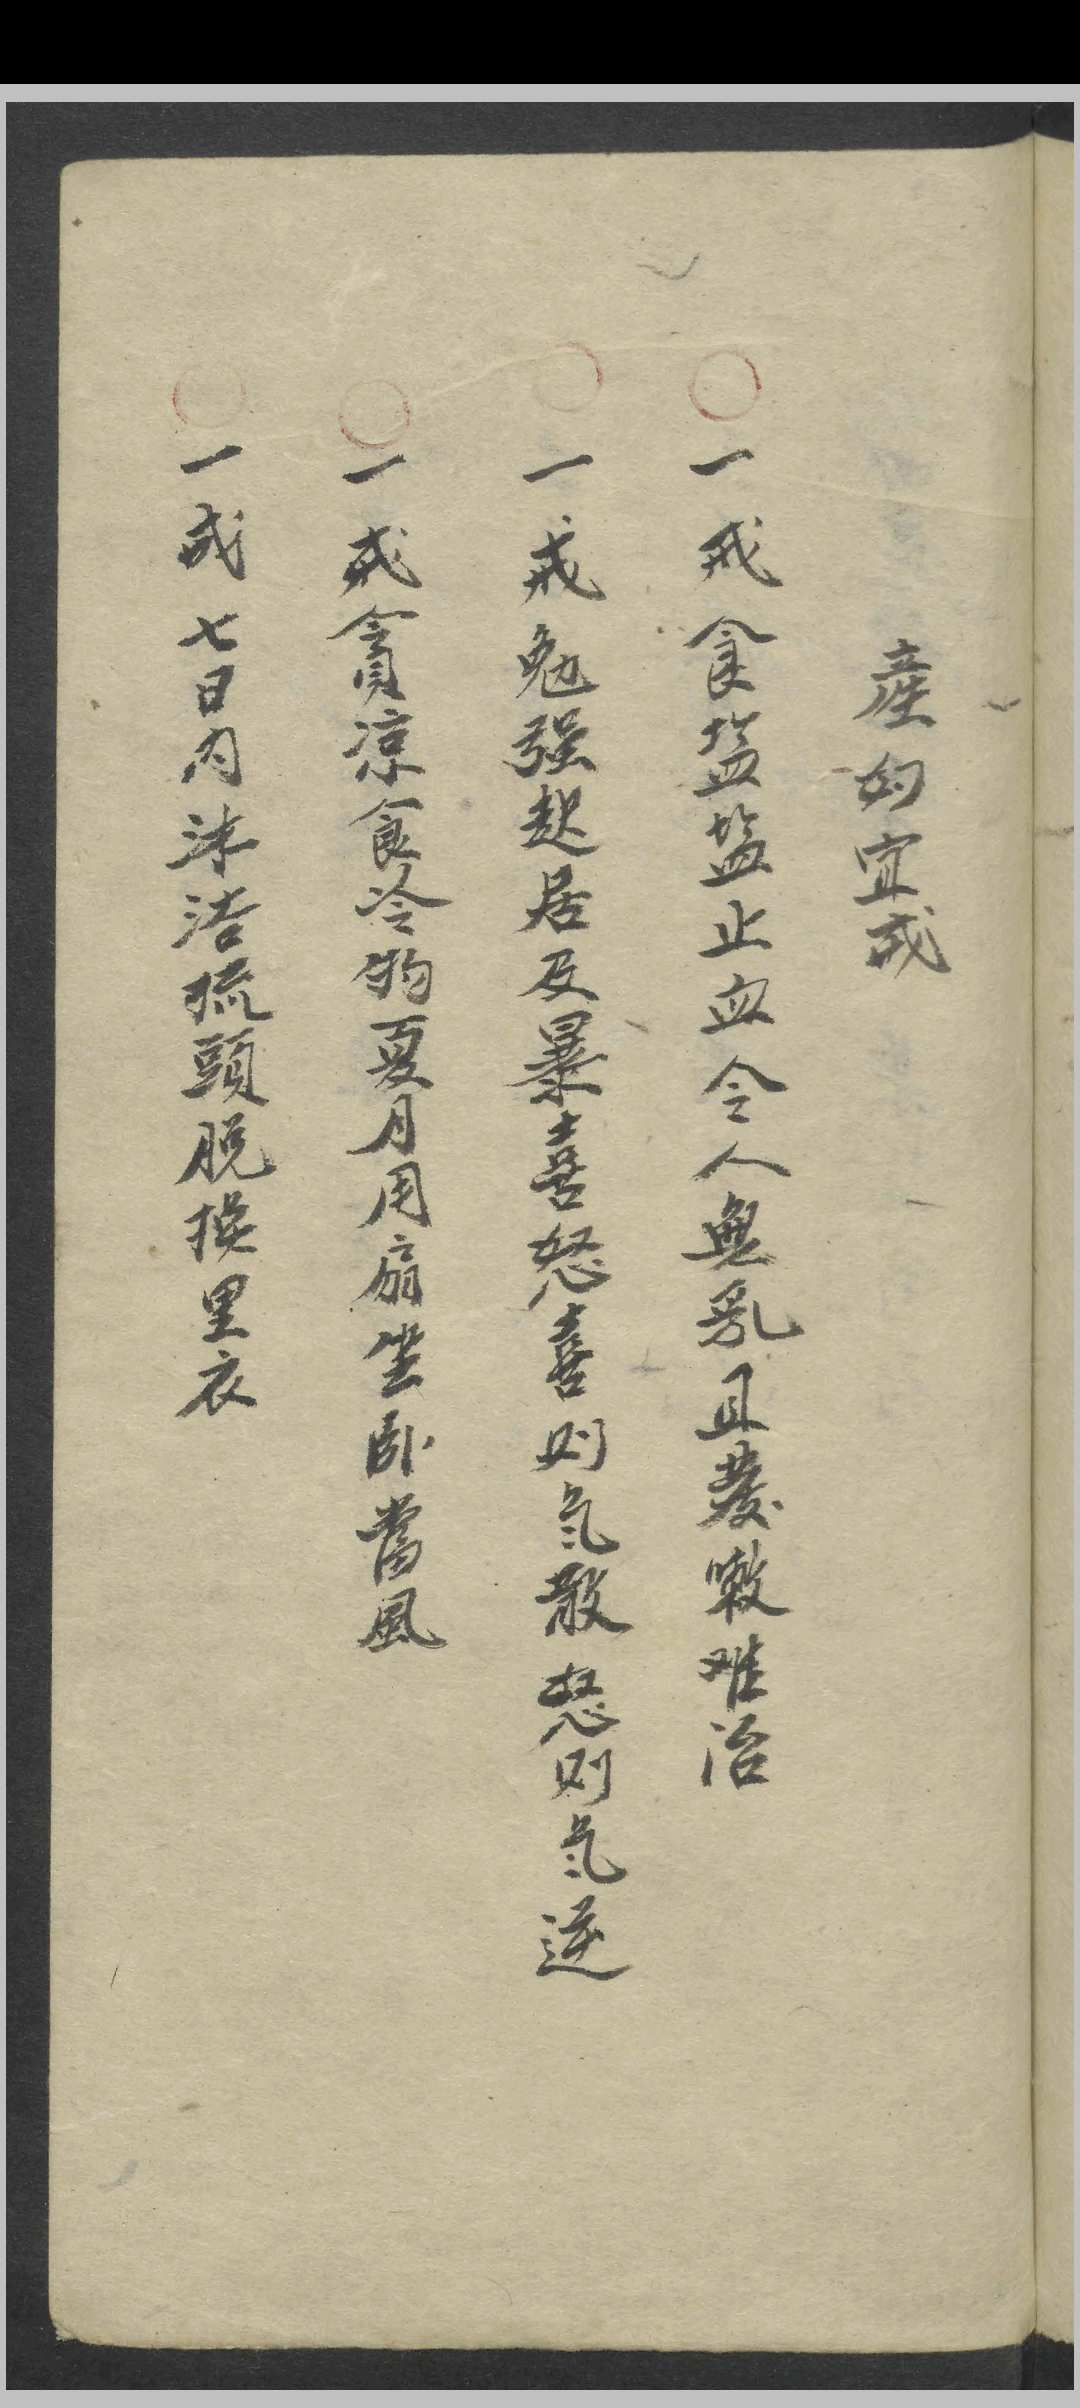 產妇宜戒
一戒食盐盐止血令人無乳且發嗽难治
一戒勉强起居及暴喜怒喜则氣散怒则氣逆
一戒貪凉食冷物夏月用扇坐卧當風
一戒七日内沐浴梳頭脱换里衣